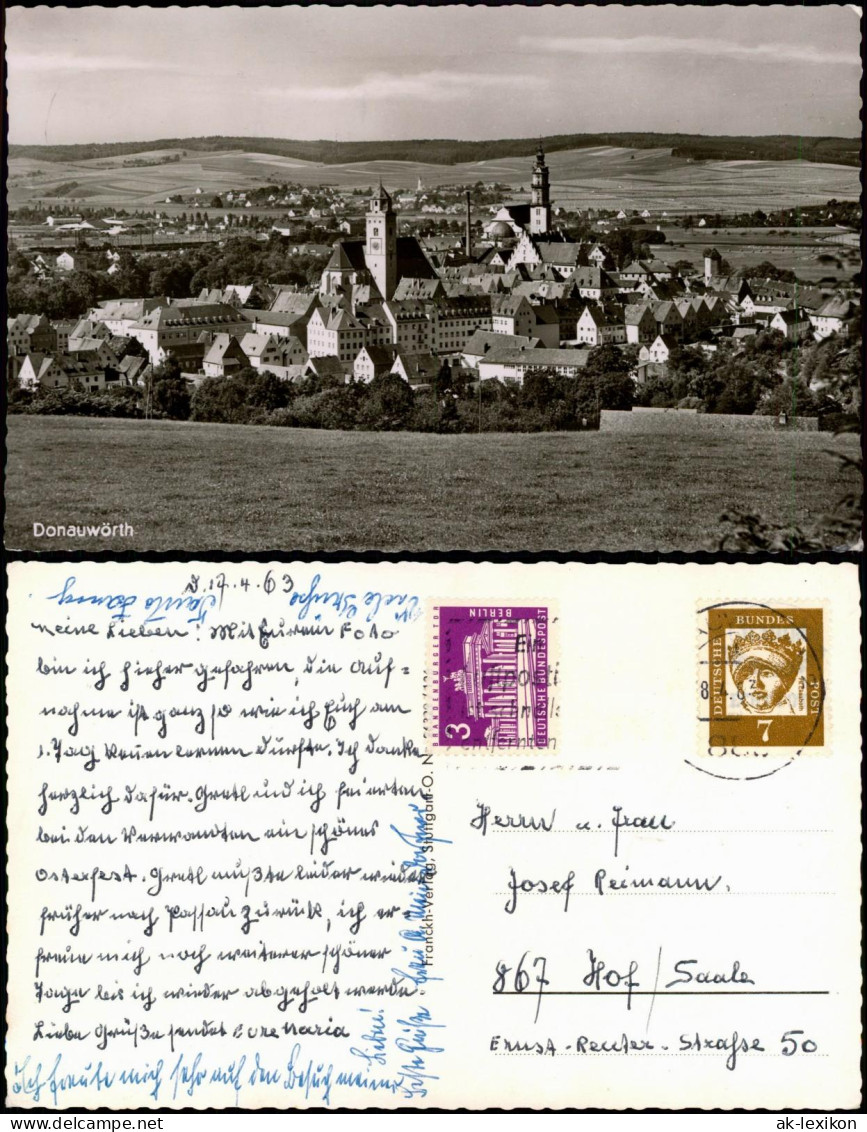 Donauwörth
d. 17.4.63
Meine Lieben! Mit Eurem Foto
bin ich hieher gefahren, die Auf=
nahme ist ganz so wie ich Euch am
1. Tag kennen lernen durfte. Ich danke
herzlich dafür. Gretl und ich feierten
bei den Verwandten ein schönes
Osterfest. Gretl mußte leider wieder
früher nach Passau zurück, ich er=
freue mich noch weiterer schöner
Tage bis ich wieder abgeholt werde.
Liebe Grüße sendet Maria
Ich freute mich sehr auf den Besuch meiner
Lieben!
Viele Grüße
Franckh-Verlag, Stuttgart-O.
BRANDENBURGER TOR
BERLIN
3
DEUTSCHE BUNDESPOST
DEUTSCHE
BUNDES
POST
7
Herrn u. Frau
Josef Reimann,
867 Hof/Saale
Ernst-Reuter-Straße 50
www.ansichtskarten-lexikon.de
ak-lexikon